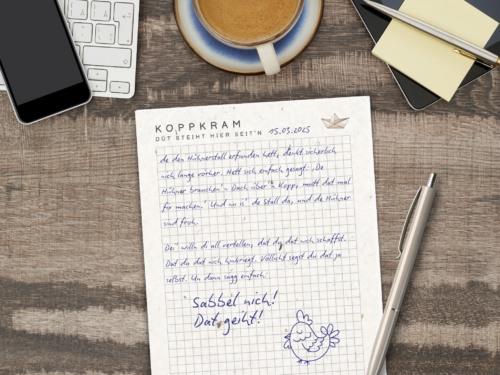 KOPPKRAM
DÜT STEIHT HIER SEIT'N 15.03.2025
de den Hühnerstall erfunden hett, denkt sicherlich
nich lange vorher. Hett sich einfach gesagt: „De
Hühner bruuchen 'n Dach über 'n Kopp, mutt dat mal
fix machen.“ Und nu is' de Stall da, und de Hühner
sind froh.
Dei' willn di all vertellen, dat du dat nich schaffst.
Dat du dat nich henkriegst. Vielicht segst du dat ja
selbst. Un dann sagg einfach:
sabbel nich!
Dat geiht!